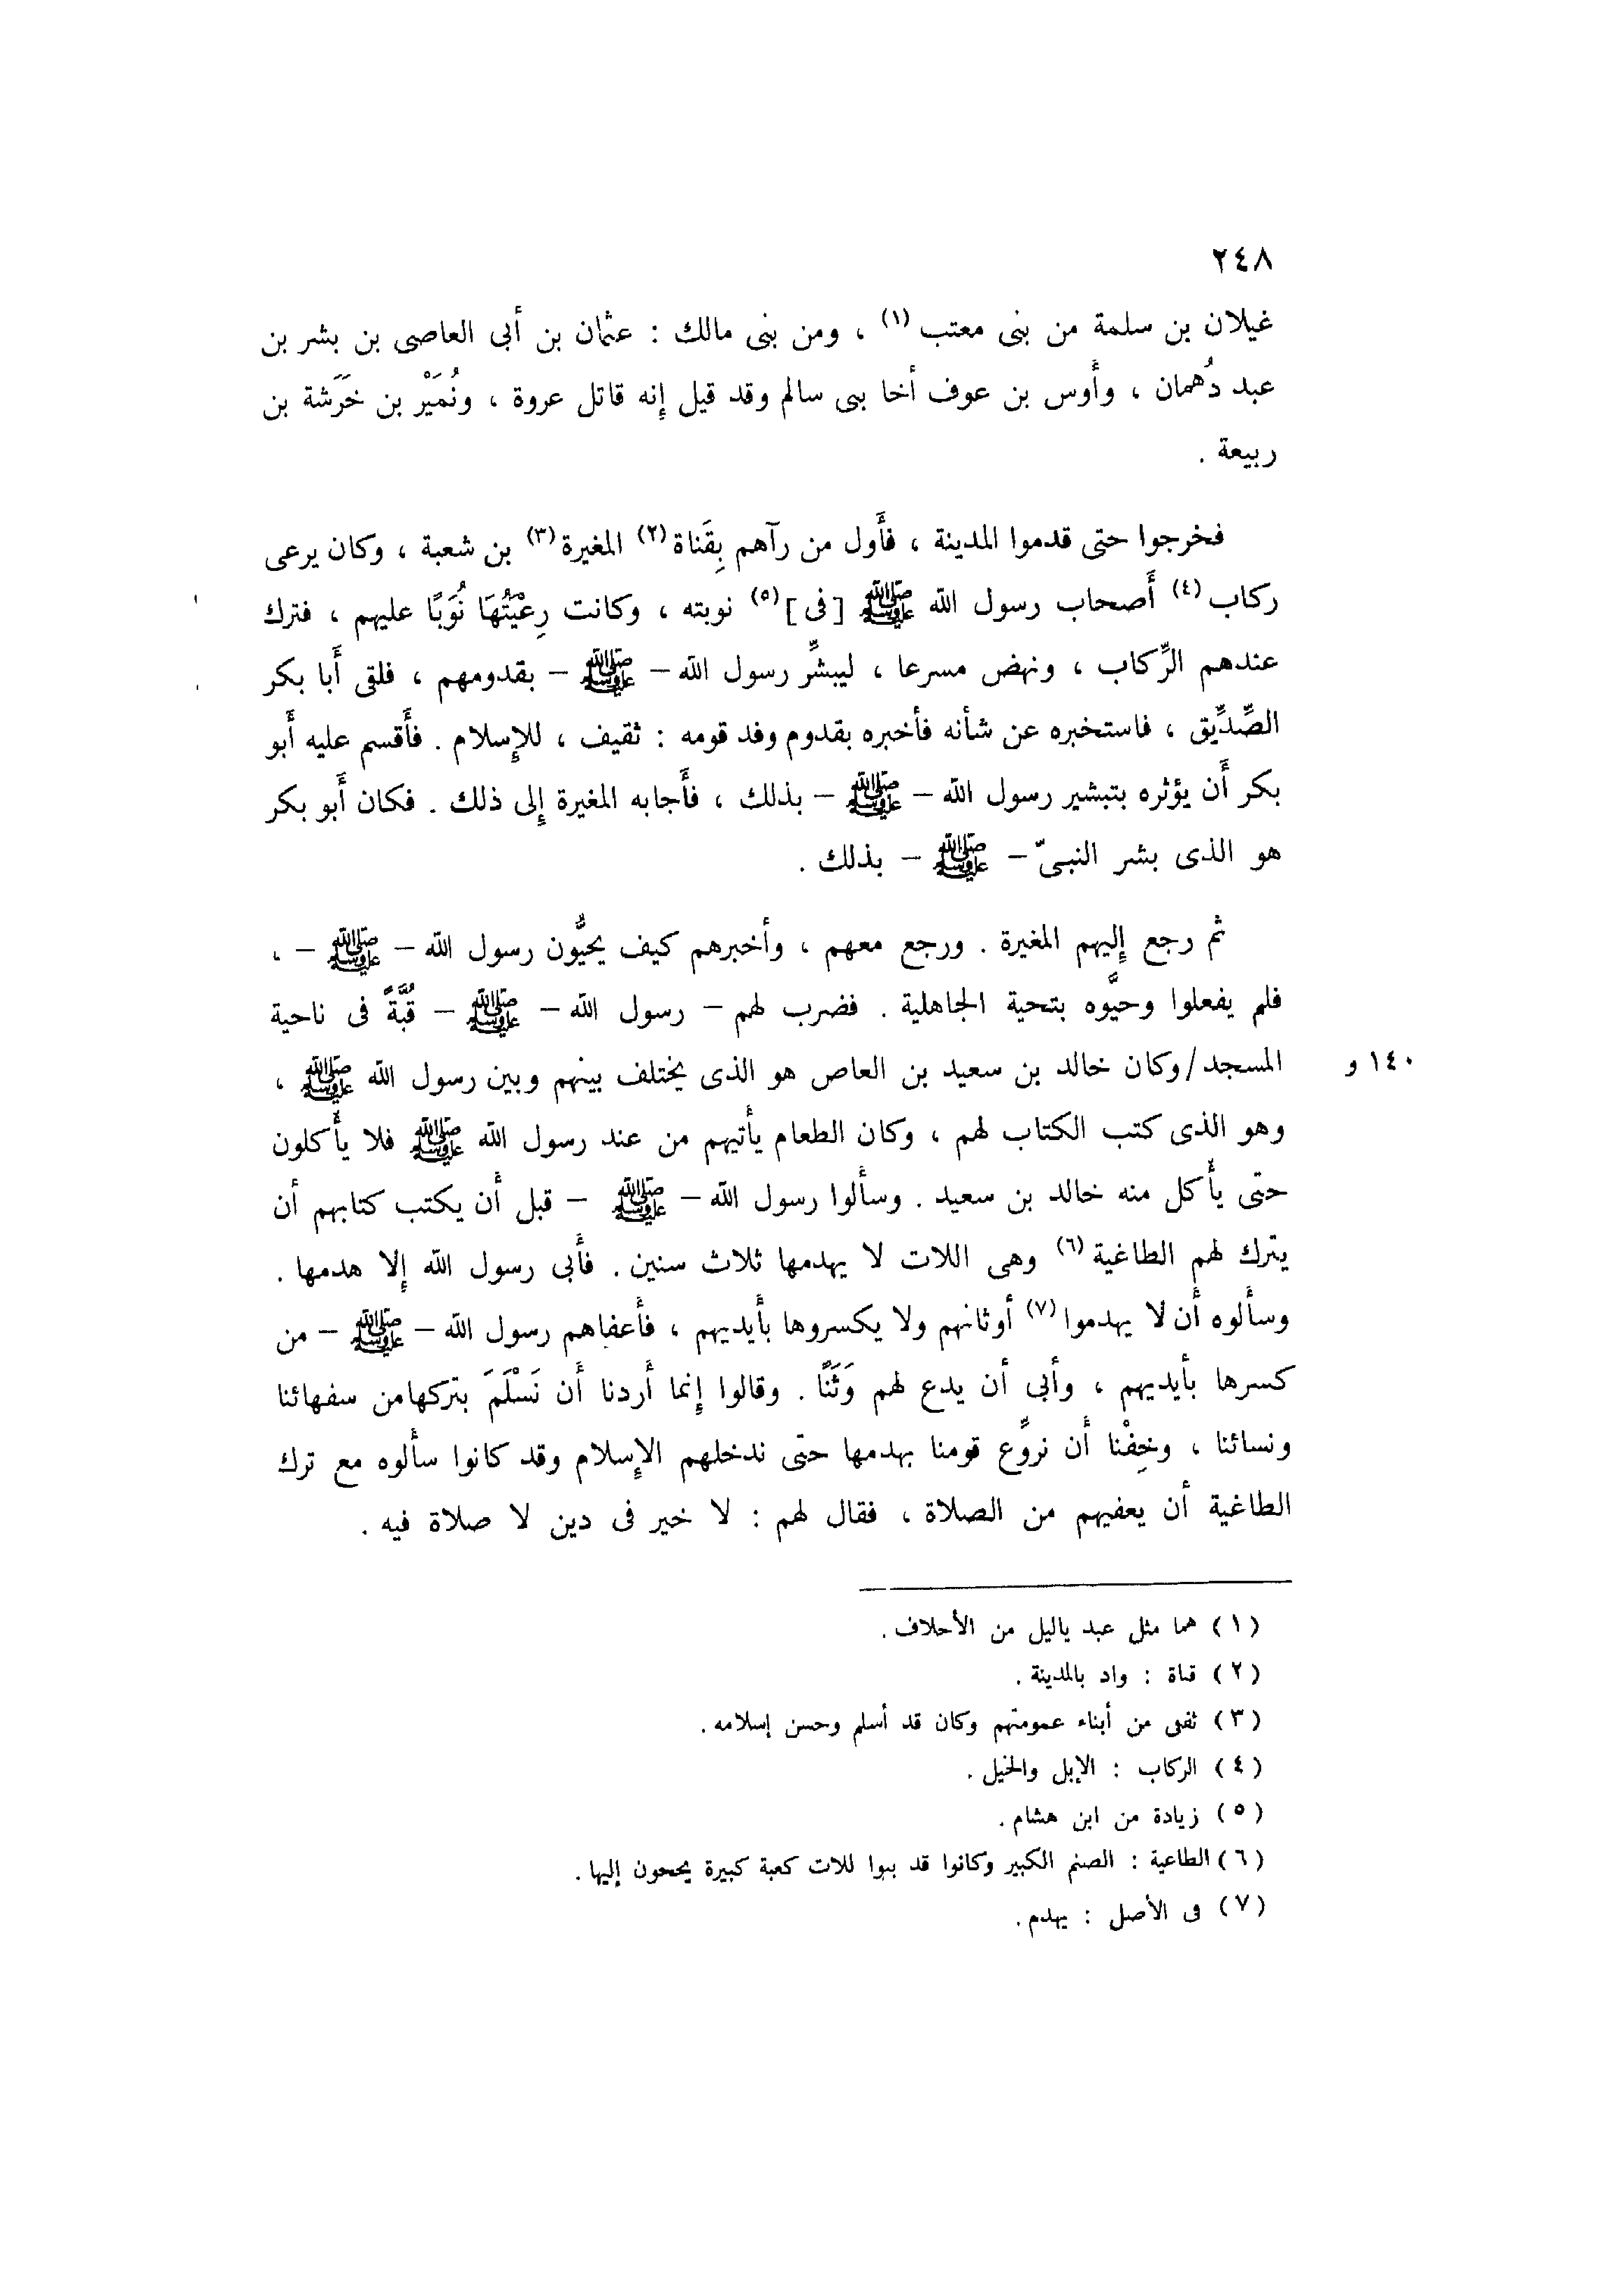 ٢٤٨
غيلان بن سلمة من بنى معتب (١) ، ومن بنى مالك : عثمان بن أبى العاصى بن بشر بن
عبد دُهمان ، وأَوس بن عوف أخا بنى سالم وقد قيل إنه قاتل عروة ، ونُمَيْر بن خَرَشة بن
ربيعة .
فخرجوا حتى قدموا المدينة ، فأَول من رآهم بِقَناة (٢) المغيرة (٣) بن شعبة ، وكان يرعى
ركاب (٤) أَصحاب رسول الله ﷺ [ فى ] (٥) نوبته ، وكانت رِعْيَتُهَا نُوَبًا عليهم ، فترك
عندهم الرِّكاب ، ونهض مسرعا ، ليبشِّر رسول الله – ﷺ – بقدومهم ، فلقى أَبا بكر
الصِّدِّيق ، فاستخبره عن شأنه فأخبره بقدوم وفد قومه : ثقيف ، للإِسلام . فأَقسم عليه أَبو
بكر أَن يؤثره بتبشير رسول الله – ﷺ – بذلك ، فأَجابه المغيرة إِلى ذلك . فكان أَبو بكر
هو الذى بشر النبىّ – ﷺ – بذلك .
ثم رجع إِليهم المغيرة . ورجع معهم ، وأخبرهم كيف يحيُّون رسول الله – ﷺ – ،
فلم يفعلوا وحيَّوه بتحية الجاهلية . فضرب لهم – رسول الله – ﷺ – قُبَّةً فى ناحية
المسجد/وكان خالد بن سعيد بن العاص هو الذى يختلف بينهم وبين رسول الله ﷺ ، ١٤٠ و
وهو الذى كتب الكتاب لهم ، وكان الطعام يأتيهم من عند رسول الله ﷺ فلا يأكلون
حتى يأكل منه خالد بن سعيد . وسألوا رسول الله – ﷺ – قبل أن يكتب كتابهم أن
يترك لهم الطاغية (٦) وهى اللات لا يهدمها ثلاث سنين . فأَبى رسول الله إلا هدمها .
وسألوه أن لا يهدموا (٧) أوثانهم ولا يكسروها بأيديهم ، فأَعفاهم رسول الله – ﷺ – من
كسرها بأيديهم ، وأبى أن يدع لهم وَثَنًا . وقالوا إِنما أَردنا أَن نَسْلَمَ بتركهامن سفهائنا
ونسائنا ، وخِفْنا أَن نروِّع قومنا بهدمها حتى ندخلهم الإِسلام وقد كانوا سألوه مع ترك
الطاغية أن يعفيهم من الصلاة ، فقال لهم : لا خير فى دين لا صلاة فيه .
(١) هما مثل عبد ياليل من الأحلاف .
(٢) قناة : واد بالمدينة .
(٣) ثقفى من أبناء عمومتهم وكان قد أسلم وحسن إسلامه .
(٤) الركاب : الإبل والخيل .
(٥) زيادة من ابن هشام .
(٦) الطاغية : الصنم الكبير وكانوا قد بنوا للات كعبة كبيرة يحجون إليها .
(٧) فى الأصل : يهدم .